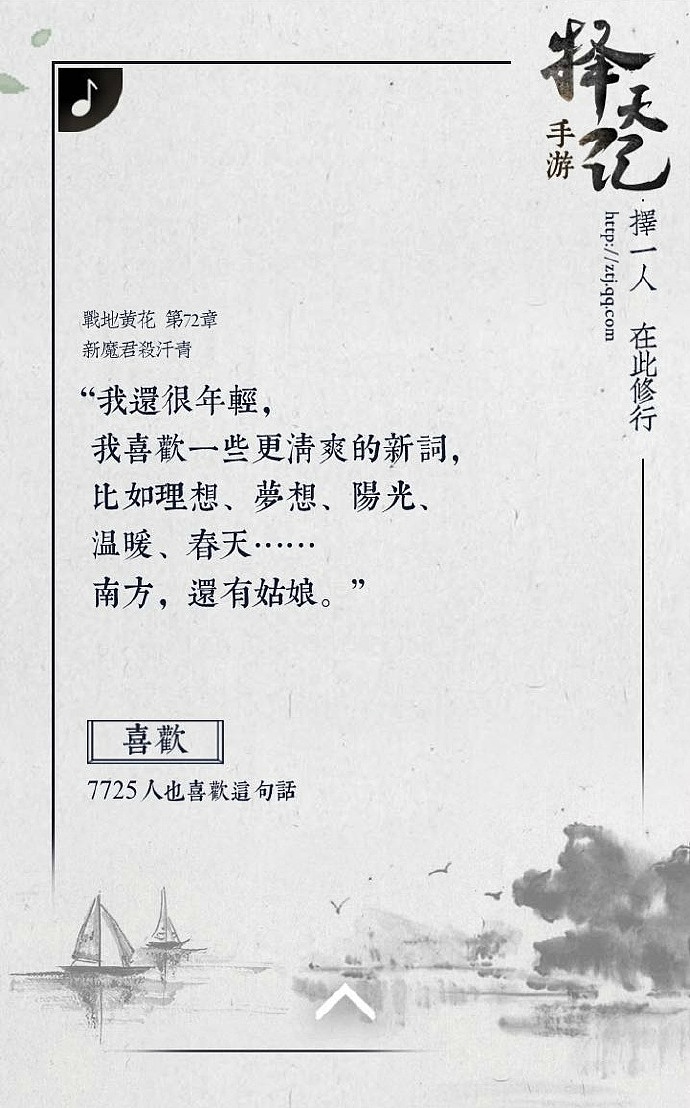 择天记
手游
擇一人 在此修行
http://ztj.qq.com
戰地黄花 第72章
新魔君殺汗青
“我還很年輕，
我喜歡一些更清爽的新詞，
比如理想、夢想、陽光、
温暖、春天……
南方，還有姑娘。”
喜歡
7725人也喜歡這句話